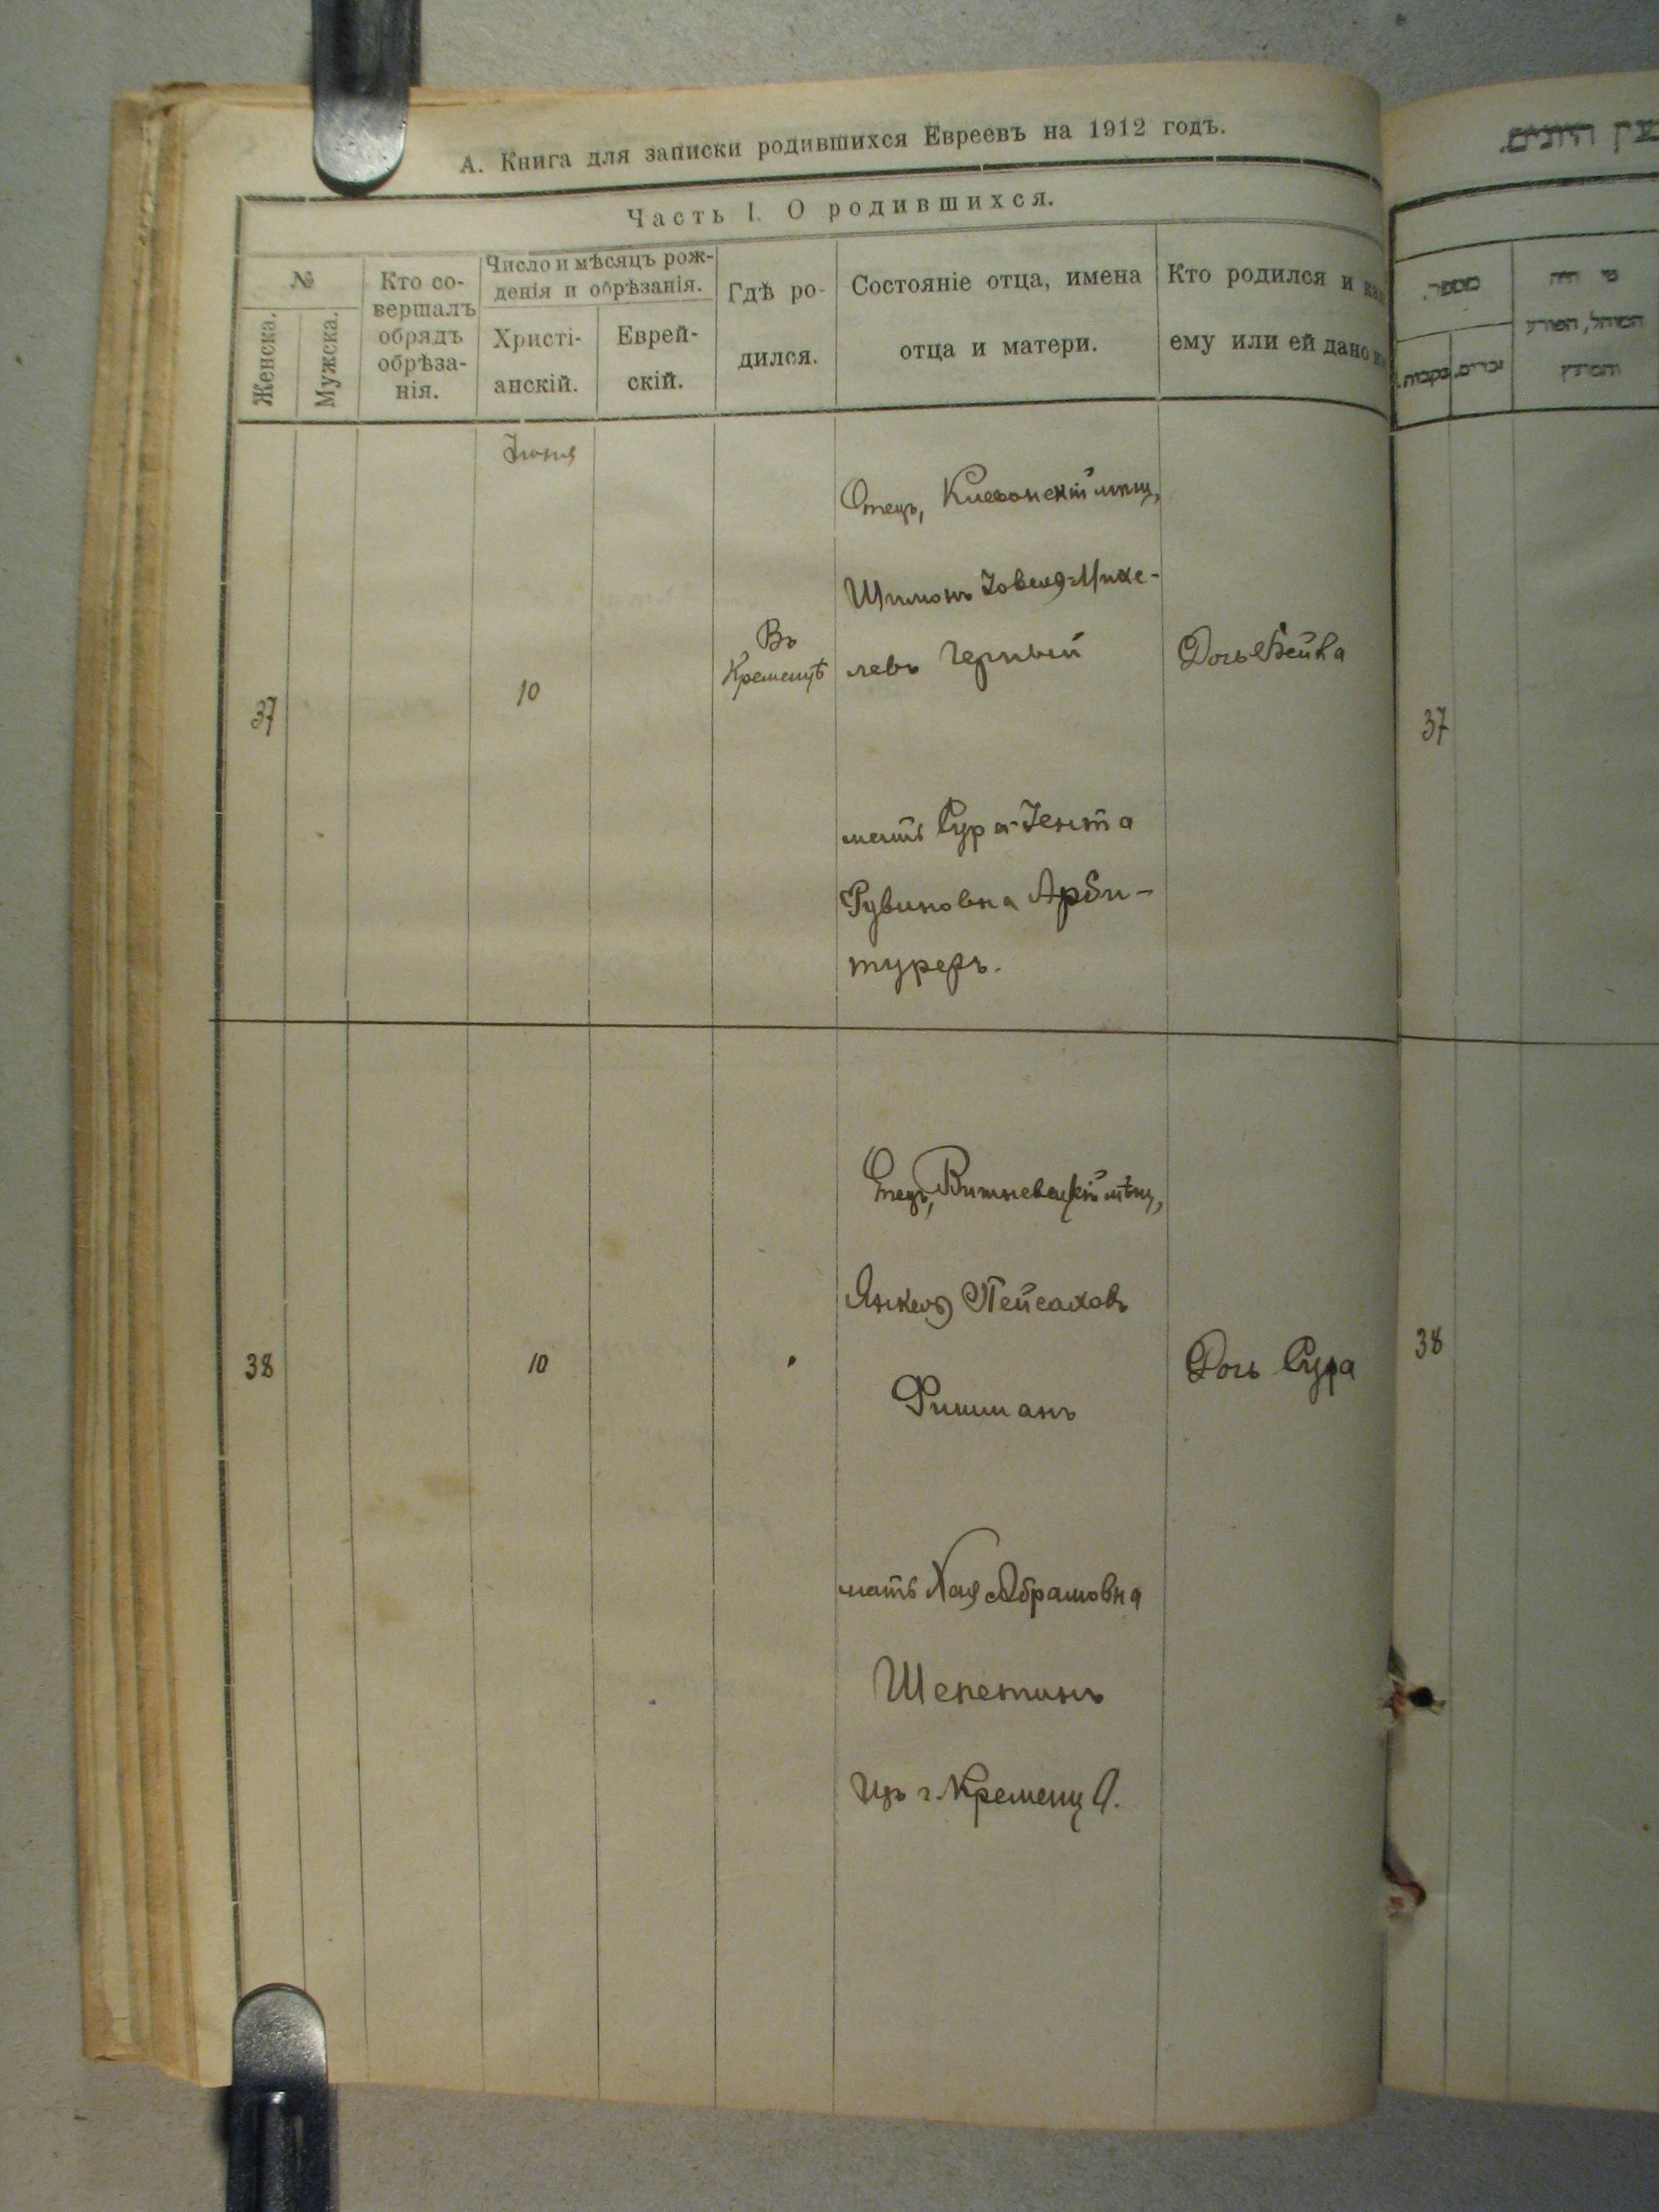 А. Книга для записки родившихся Евреевъ на 1912 годъ.
Часть I. О родившихся.
№
Женска.
Мужска.
Кто со-
вершалъ
обрядъ
обрѣза-
нія.
Число и мѣсяцъ рож-
денія и обрѣзанія.
Христі-
анскій.
Еврей-
скій.
Гдѣ ро-
дился.
Состояніе отца, имена
отца и матери.
Кто родился и как
ему или ей дано
Іюня
37
10
Въ
Кременцѣ
Отецъ, Клеванскій мѣщ,
Шимонъ Іовель-Михе-
левъ Черный
мать Сура-Іента
Рувиновна Арби-
туреръ.
Дочь Бейла
38
10
Отецъ, Вишневецкій мѣщ,
Янкель Пейсаховъ
Фишманъ
мать Хая Абрамовна
Шепетинъ
Изъ г. Кременца.
Дочь Сура
מספר.
נקבות.
זכרים.
מי היה
המוהל, הפורע
והמוצץ
37
38